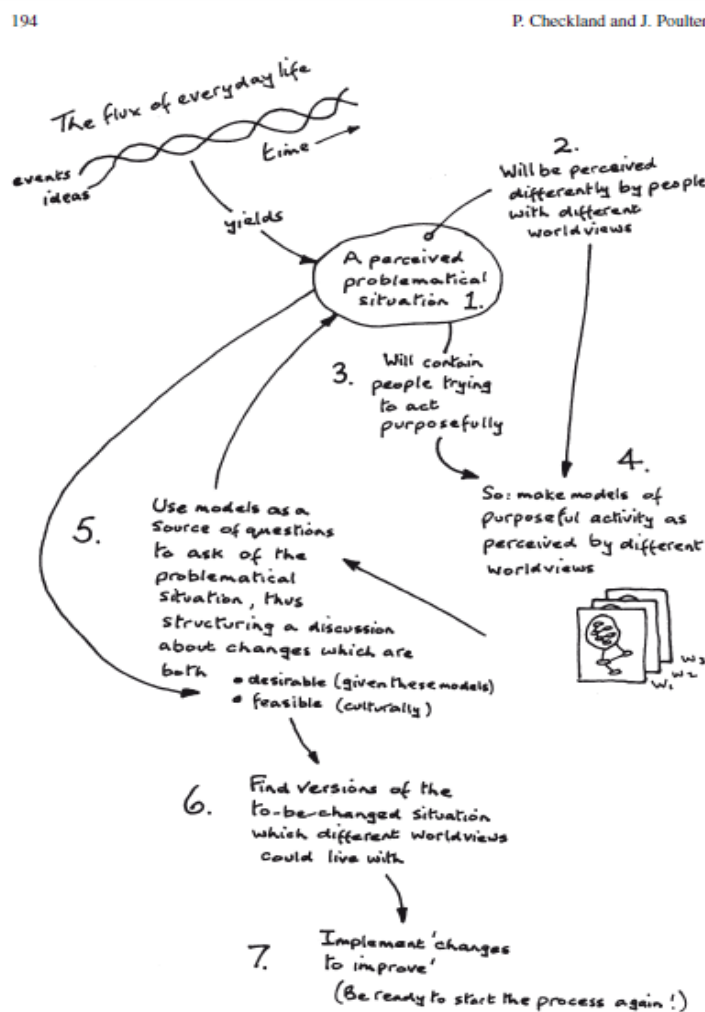 194
P. Checkland and J. Poulter
The flux of everyday life
events
ideas
time
yields
A perceived
problematical
situation 1.
2.
Will be perceived
differently by people
with different
worldviews
3.
Will contain
people trying
to act
purposefully
4.
So: make models of
purposeful activity as
perceived by different
worldviews
W3
W2
W1
5.
Use models as a
source of questions
to ask of the
problematical
situation, thus
structuring a discussion
about changes which are
both
• desirable (given these models)
• feasible (culturally)
6.
Find versions of the
to-be-changed situation
which different worldviews
could live with
7.
Implement 'changes
to improve'
(Be ready to start the process again!)